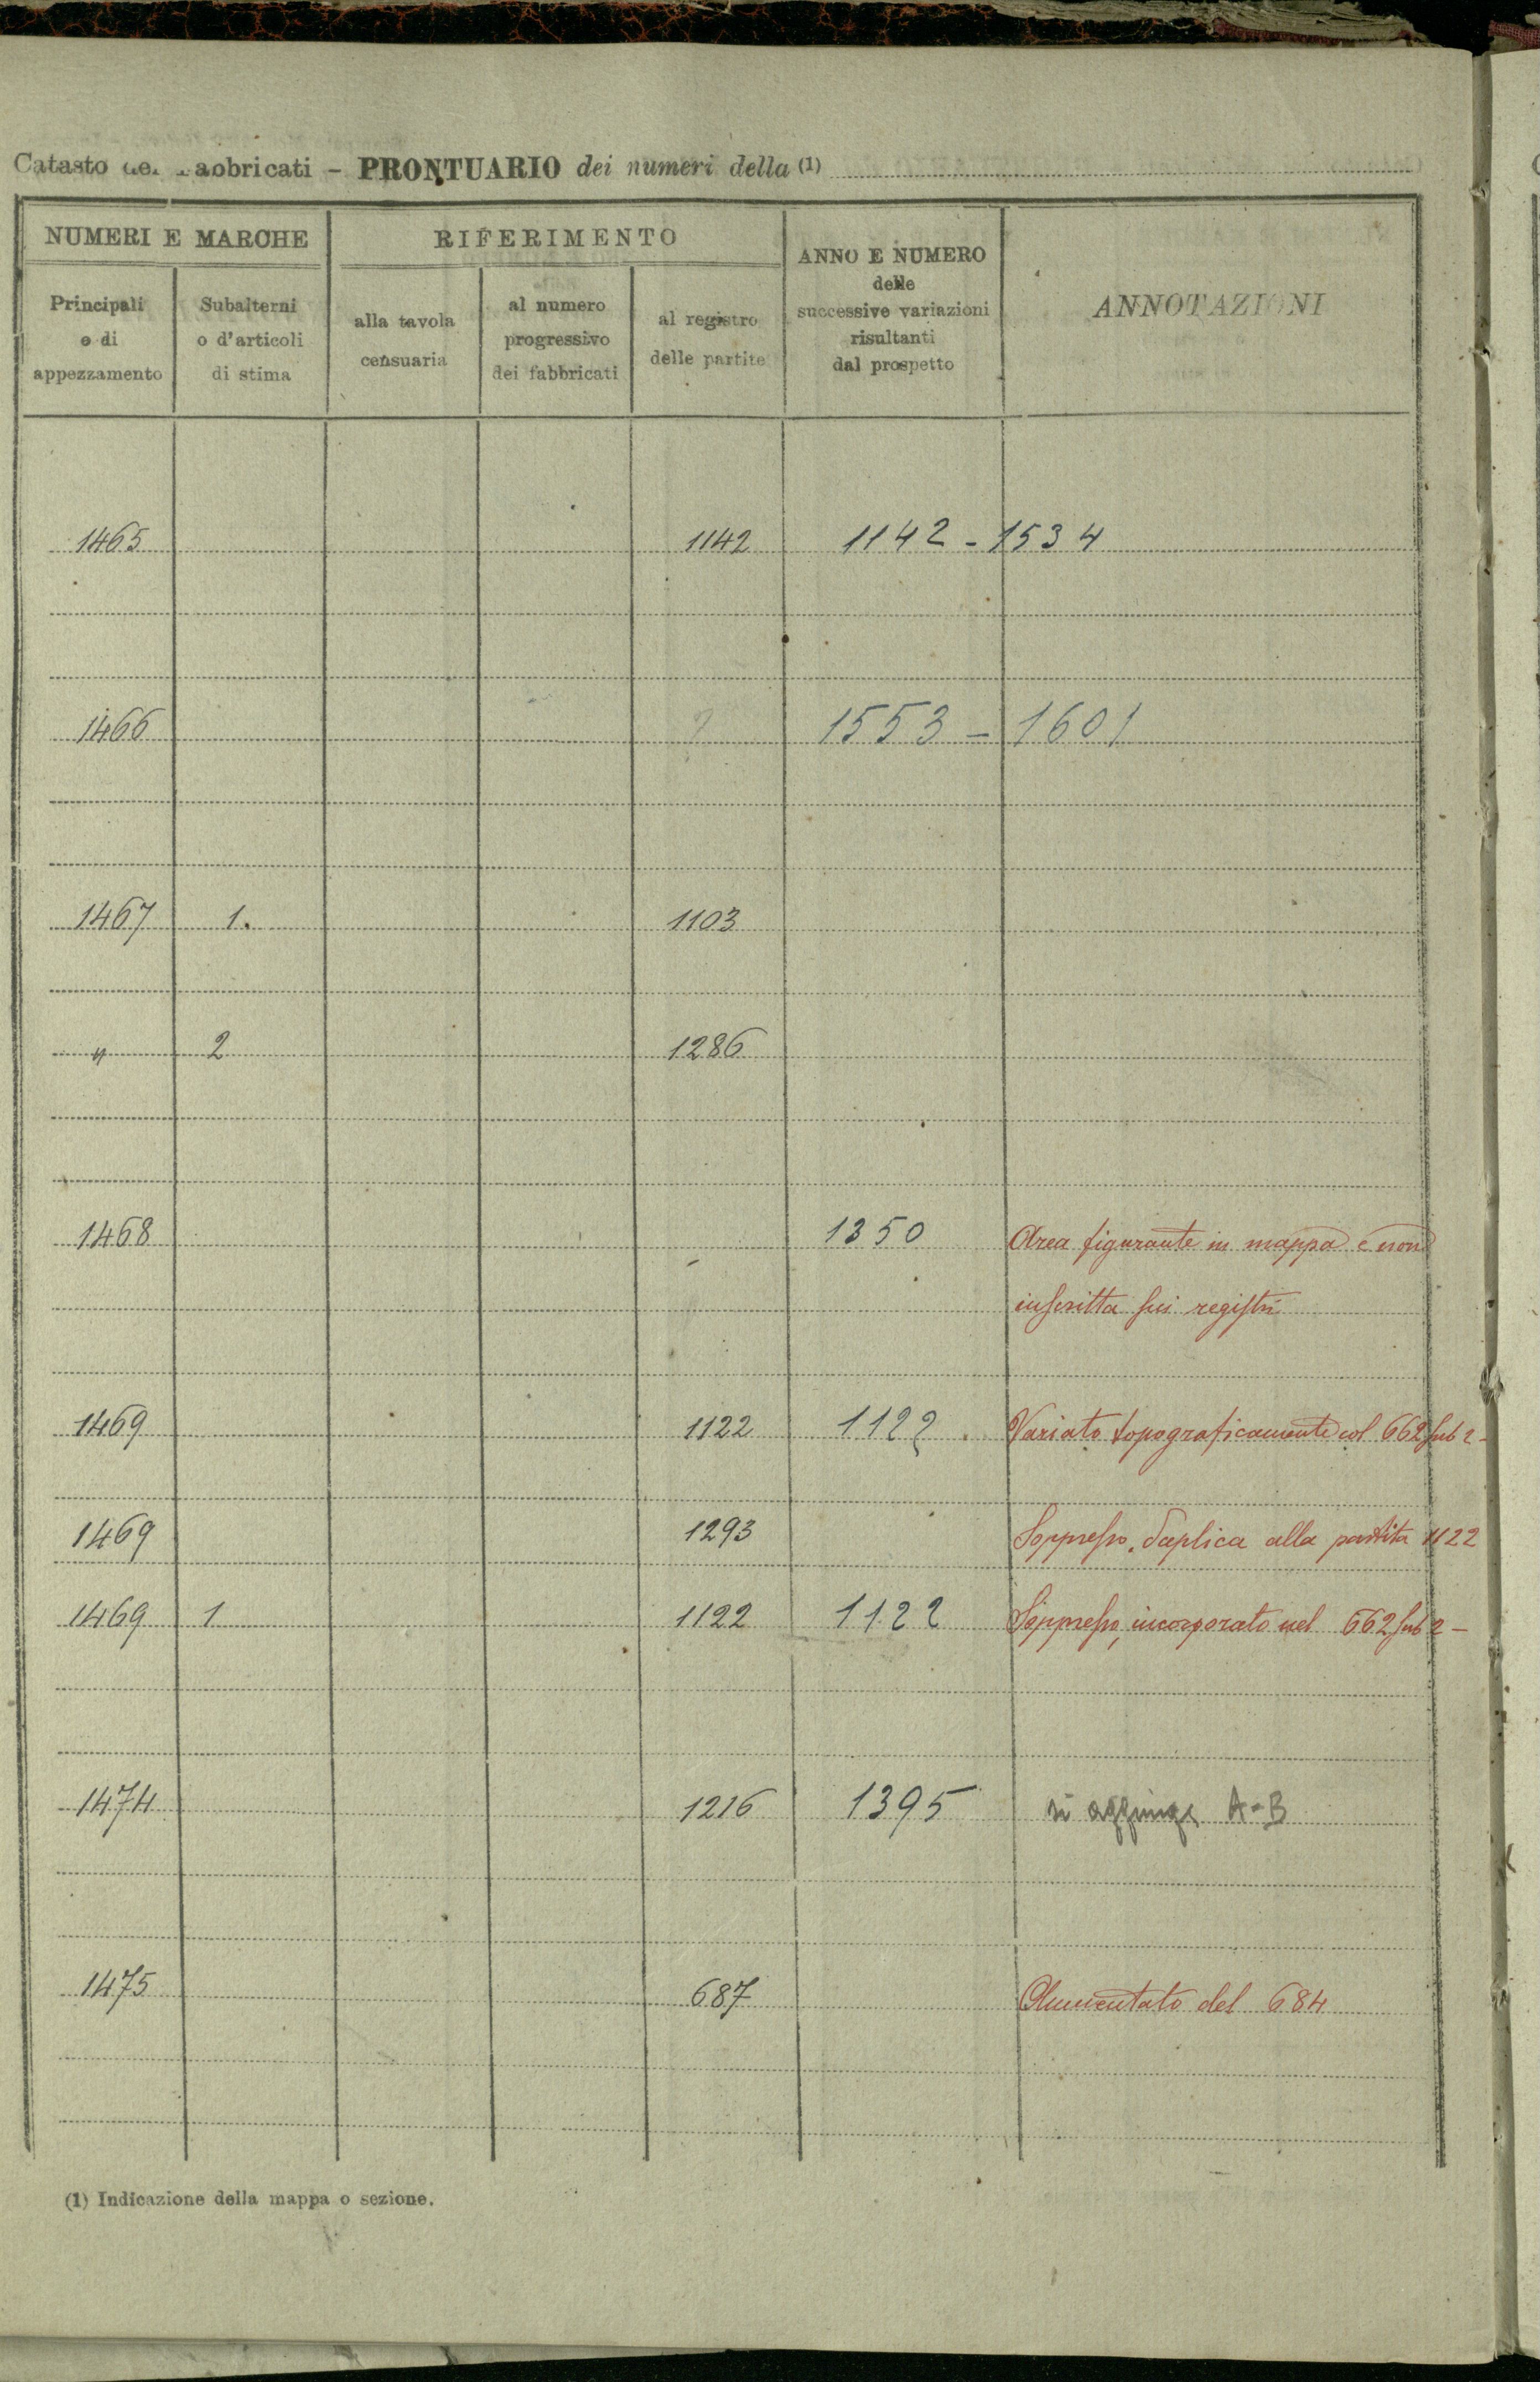 Catasto dei Fabbricati - PRONTUARIO dei numeri della (1)
NUMERI E MARCHE RIFERIMENTO ANNO E NUMERO delle successive variazioni risultanti dal prospetto ANNOTAZIONI
Principali e di appezzamento Subalterni o d'articoli di stima alla tavola censuaria al numero progressivo dei fabbricati al registro delle partite
1465 1142 1142 - 1534
1466 ? 1553 - 1601
1467 1. 1103
" 2 1286
1468 1350 Area figurante in mappa e non
inscritta sui registri
1469 1122 1122 Variato topograficamente col 662 sub 2 -
1469 1293 Soppresso. Duplica alla partita 1122
1469 1 1122 1122 Soppresso, incorporato nel 662 sub 2 -
1474 1216 1395 si aggiunge A-B
1475 687 Aumentato del 684
(1) Indicazione della mappa o sezione.